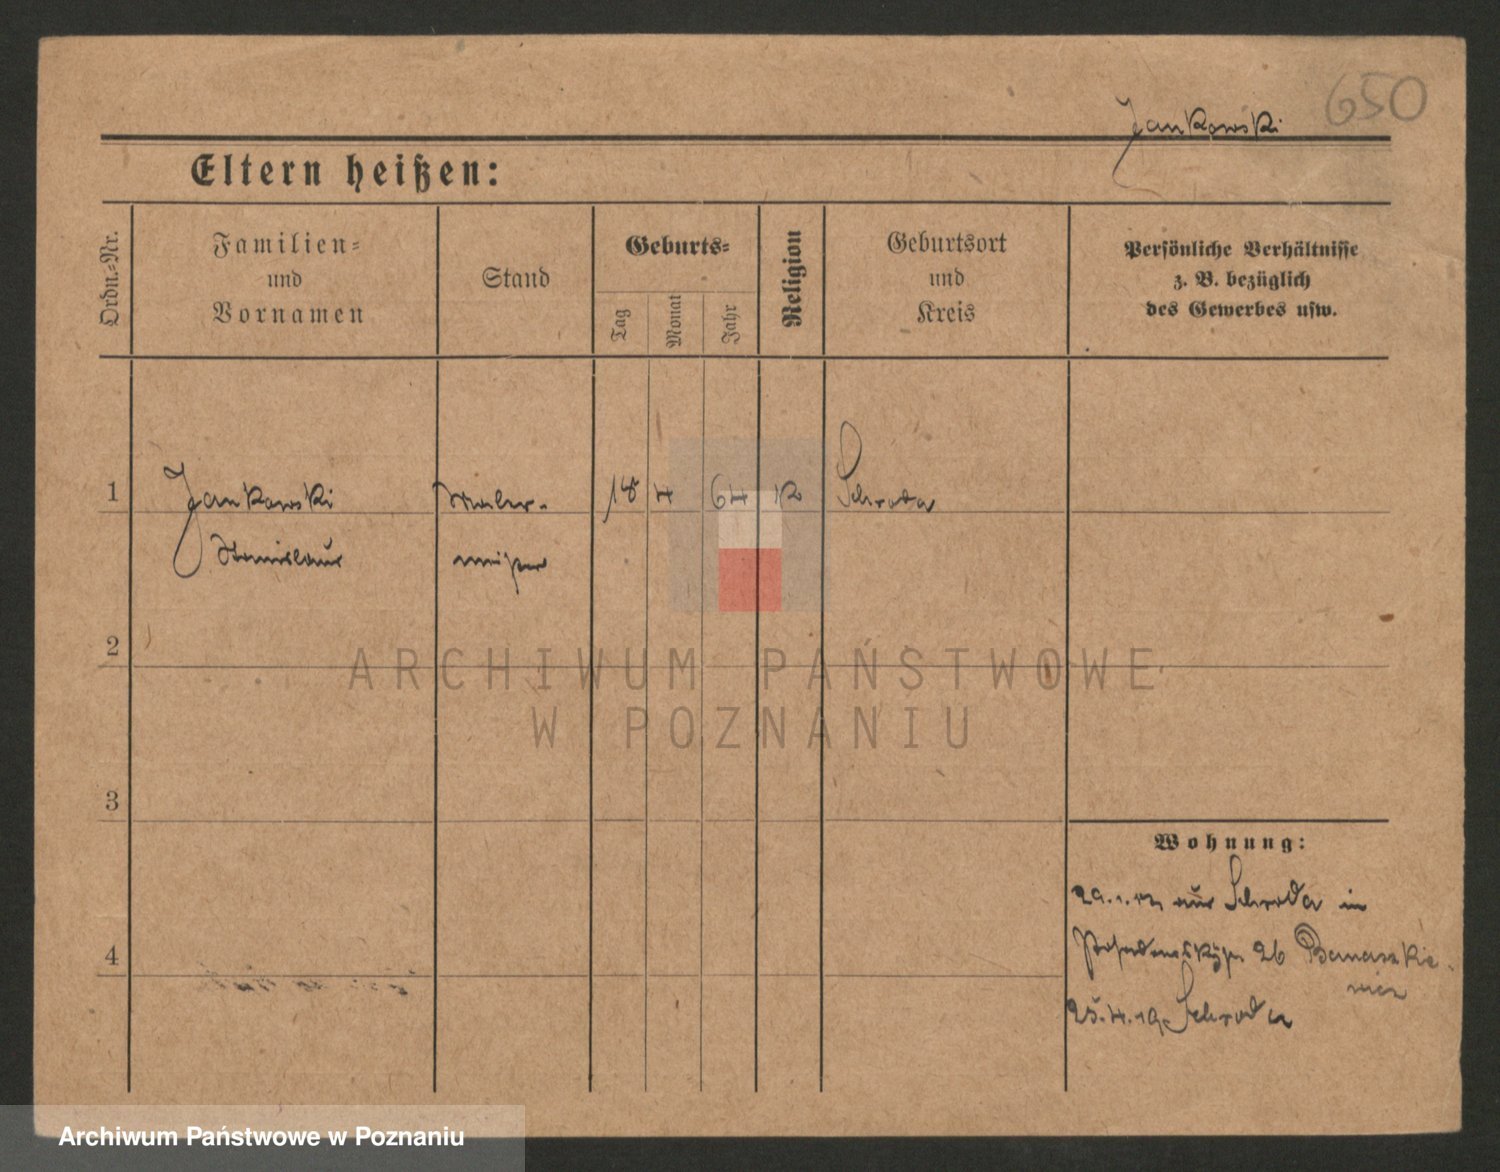 650
Jankowski
Eltern heißen:
Ordn.-Nr.
Familien-
und
Vornamen
Stand
Geburts-
Tag
Monat
Jahr
Religion
Geburtsort
und
Kreis
Persönliche Verhältnisse
z. B. bezüglich
des Gewerbes usw.
1 Jankowski Maler- 18 4 64 K Schroda
Stanislaus meister
2
3
4
Wohnung:
29.1.12 aus Schroda in
26
25.4.19 Schroda
ARCHIWUM PAŃSTWOWE
W POZNANIU
Archiwum Państwowe w Poznaniu